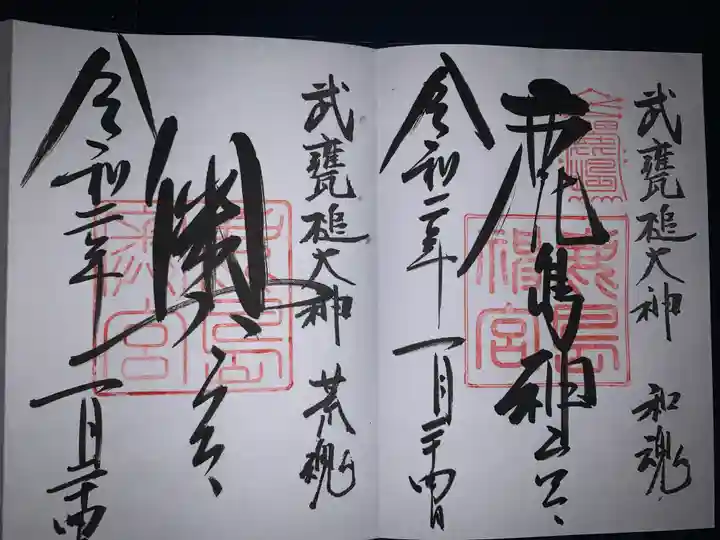 武甕槌大神 和魂
鹿島神宮
鹿島神宮
令和二年 一月二十四日
武甕槌大神 荒魂
奥宮
令和二年 一月二十四日